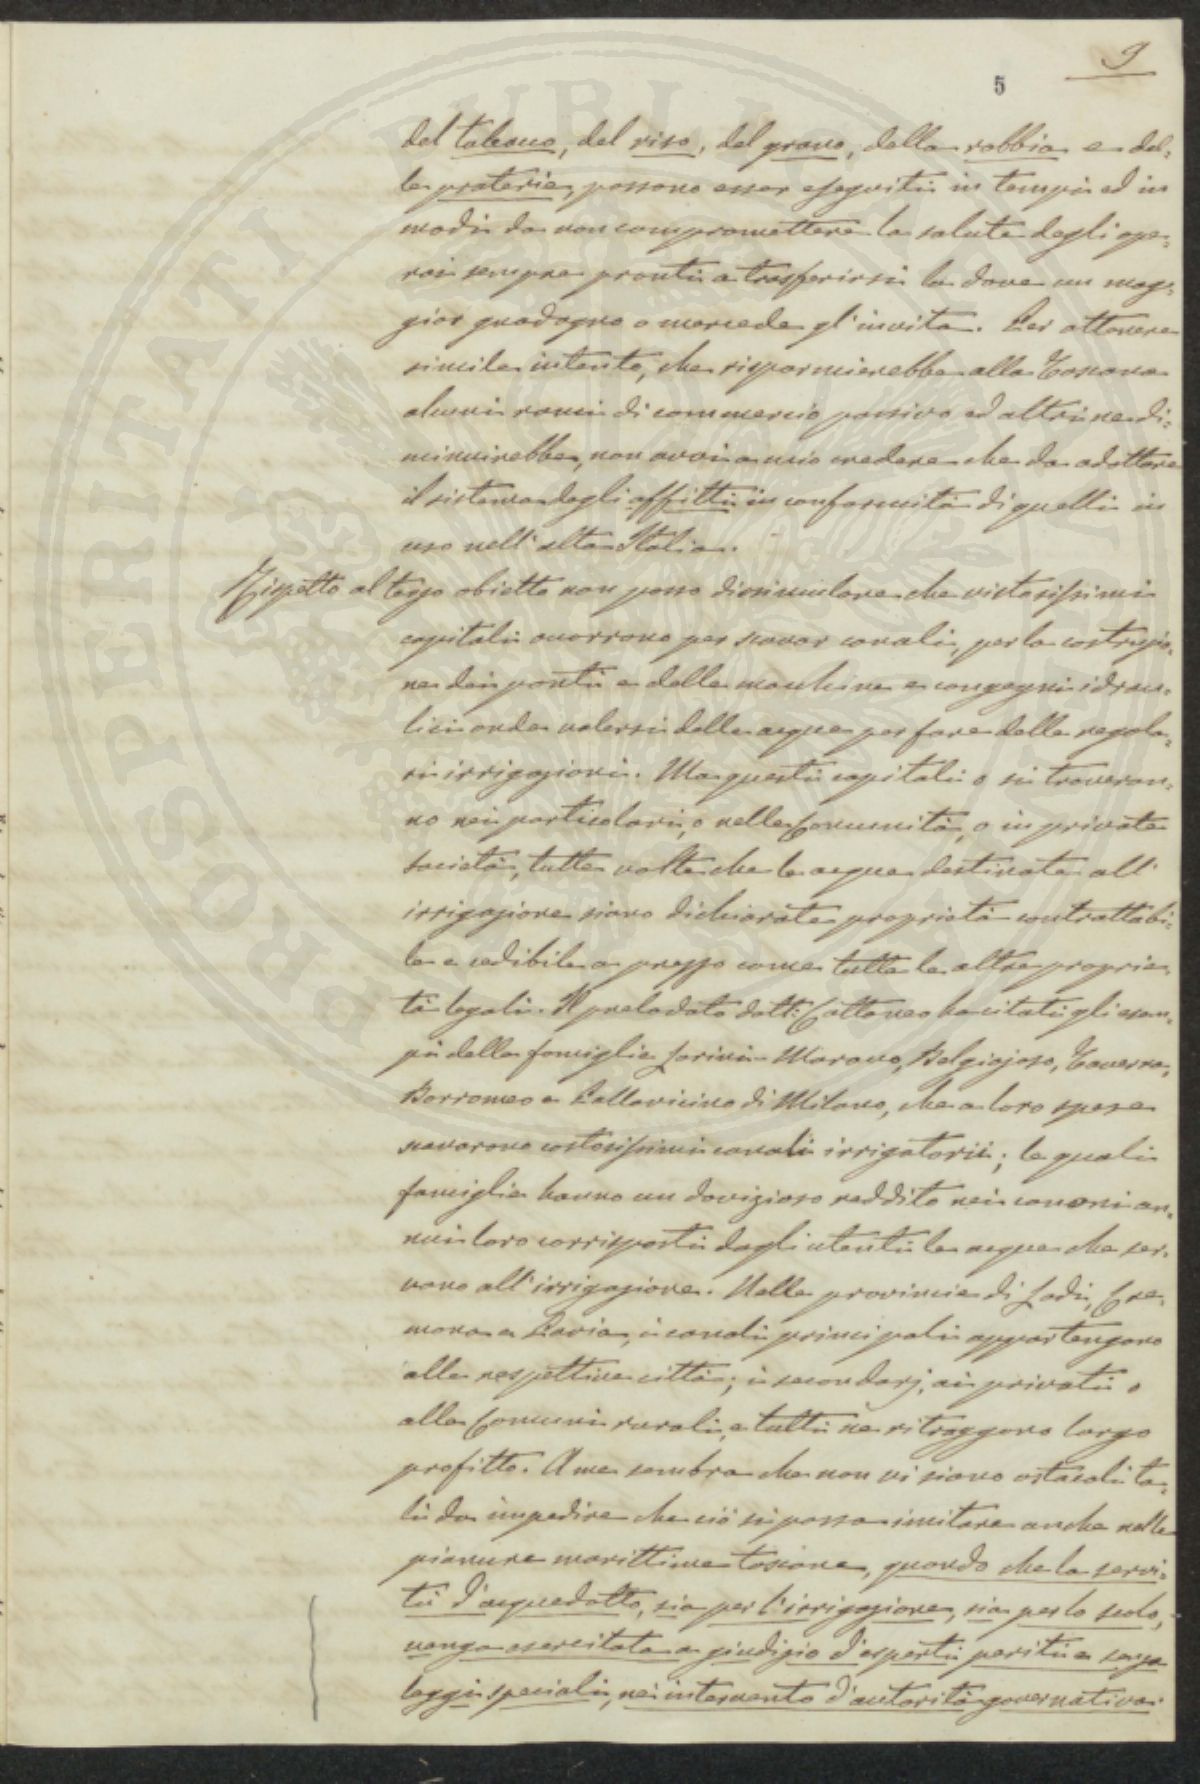 9
5
del tabacco, del riso, del grano, della robbia e del:
le praterie, possono esser eseguiti in tempi ed in
modi da non compromettere la salute degli ope:
rai sempre pronti a trasferirsi la dove un mag:
gior guadagno o mercede gl'invita. Per ottenere
simile intento, che risparmierebbe alla Toscana
alcuni rami di commercio passivo ed altri ne di:
minuirebbe, non avvi a mio credere che da adottare
il sistema degli affitti in conformità di quelli in
uso nell'alta Italia.
Rispetto al terzo obietto non posso dissimulare che vistosissimi
capitali occorrono per scavar canali, per la costruzio:
ne dei ponti e delle macchine e congegni idrau:
lici onde valersi delle acque per fare delle regola:
ri irrigazioni. Ma questi capitali o si troveran:
no nei particolari, o nelle Comunità, o in private
società, tutte volte che le acque destinate all'
irrigazione siano dichiarate proprietà contrattabi:
le e cedibile a prezzo come tutte le altre proprie:
tà legali. Il prelodato dott: Cattaneo ha citati gli esem:
pi delle famiglie Lorini-Marano, Belgiojoso, Taverna,
Borromeo e Pallavicino di Milano, che a loro spese
scavarono costosissimi canali irrigatorii; le quali
famiglie hanno un dovizioso reddito nei canoni an:
nui loro corrisposti dagli utenti le acque che ser:
vono all'irrigazione. Nelle provincie di Lodi, Cre:
mona e Pavia, i canali principali appartengono
alle respettive città; i secondarj, ai privati o
alle Comuni rurali, e tutti ne ritraggono largo
profitto. A me sembra che non vi siano ostacoli ta:
li da impedire che ciò si possa imitare anche nelle
pianure marittime toscane, quando che la servi:
tù d'acquedotto, sia per l'irrigazione, sia per lo scolo,
venga esercitata a giudizio d'esperti periti e senza
leggi speciali, nei intervento d'autorità governativa.
PROSPERITATI PUBLICAE